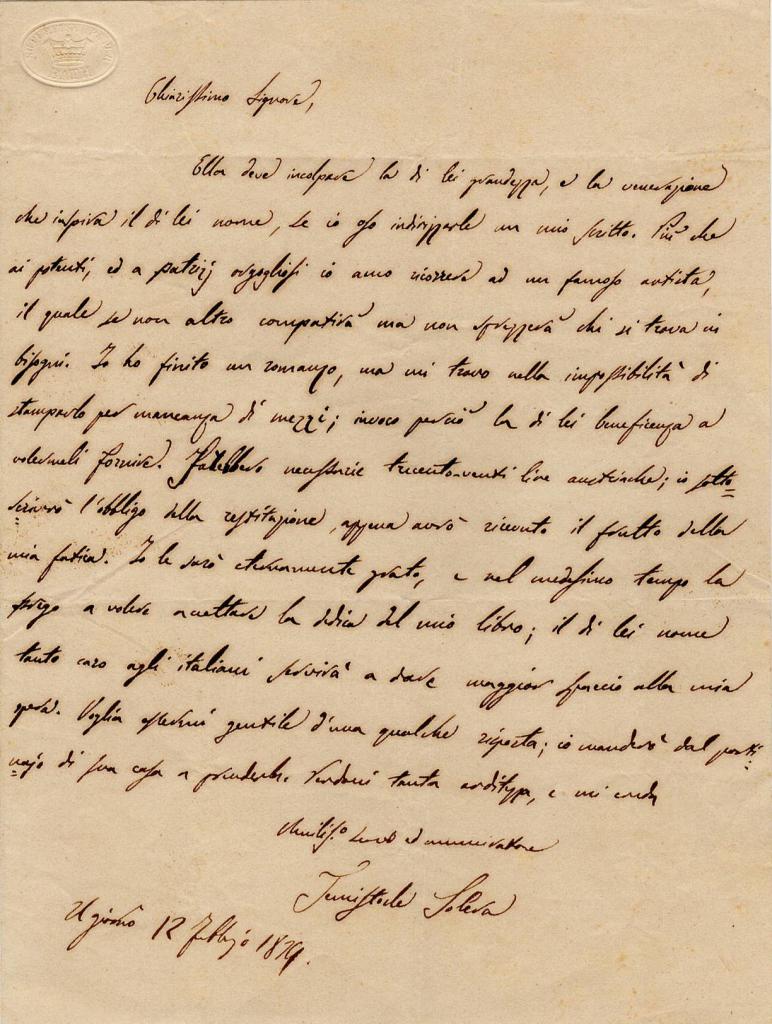 Chiarissimo Signore,
Ella deve incolpare la di lei grandezza, e la venerazione
che inspira il di lei nome, se io oso indirizzarle un mio scritto. Più che
ai potenti, ed a patrizj orgogliosi io amo ricorrere ad un famoso artista,
il quale se non altro compatirà ma non sprezzerà chi si trova in
bisogni. Io ho finito un romanzo, ma mi trovo nella impossibilità di
stamparlo per mancanza di mezzi; invoco perciò la di lei beneficenza a
volermeli fornire. Sarebbero necessarie trecento-venti lire austriache; io sotto=
scriverò l'obbligo della restituzione, appena avrò ricevuto il frutto della
mia fatica. Io le sarò eternamente grato, e nel medesimo tempo la
prego a volere accettare la dedica del mio libro; il di lei nome
tanto caro agli italiani servirà a dare maggior spaccio alla mia
opera. Voglia essermi gentile d'una qualche risposta; io manderò dal porti=
najo di sua casa a prenderla. Perdoni tanta arditezza, e mi creda
Umiliss.o servo ed ammiratore
Temistocle Solera
Il giorno 12 Febbrajo 1839.